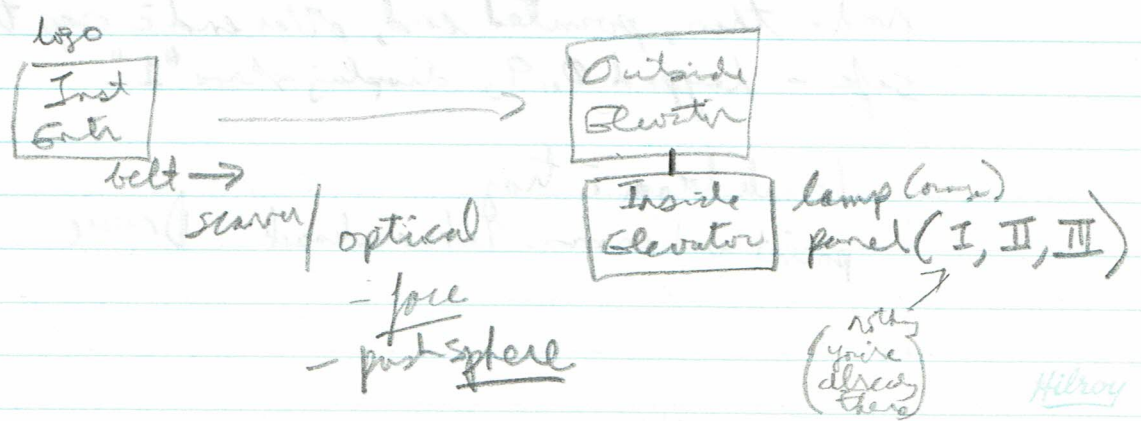 logo
Inst
Entr
belt →
scanner / optical
- face
- push sphere
Outside
Elevator
Inside
Elevator
lamp (orange)
panel (I, II, III)
(nothing
you're
already
there)
Hilroy